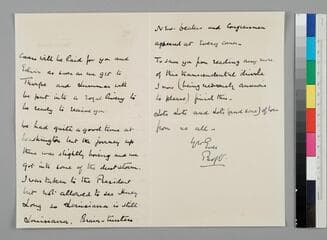 Cases will be Paid for you and
Edwin as soon as we get to
and Hummer will
be put into a Royal livery to
be ready to leave you.
We had quite a good time at
Washington but the journey up
there was slightly boring and we
got into some of the dust storm.
I was taken to the President
but not allowed to see Huey
Long so Louisiana is still
Louisiana. Brain-trusters
New-dealers and Congressmen
appeared at every corner.
To save you from reading any more
of this transcendental drivle
I now (being extremely anxious
to please) finish this.
Lots lots and lots (good lots) of love
from us all -
Yrs